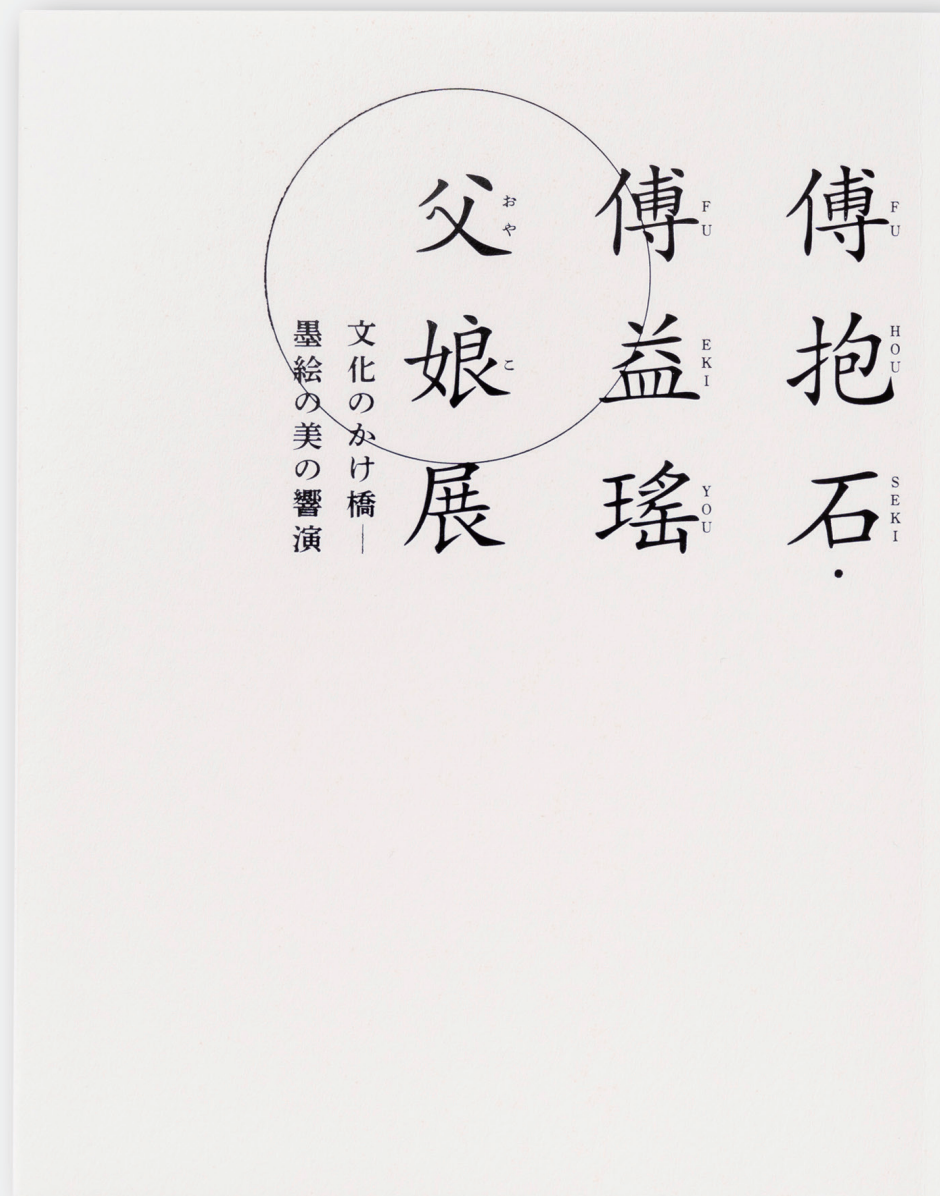 傅抱石・
FU HOU SEKI
傅益瑤
FU EKI YOU
父娘展
おや こ
文化のかけ橋―
墨絵の美の響演